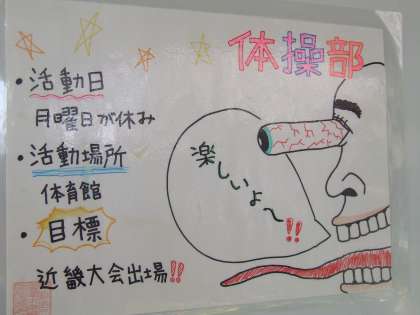 体操部
・活動日
月曜日が休み
・活動場所
体育館
・目標
近畿大会出場!!
楽しいよ〜!!